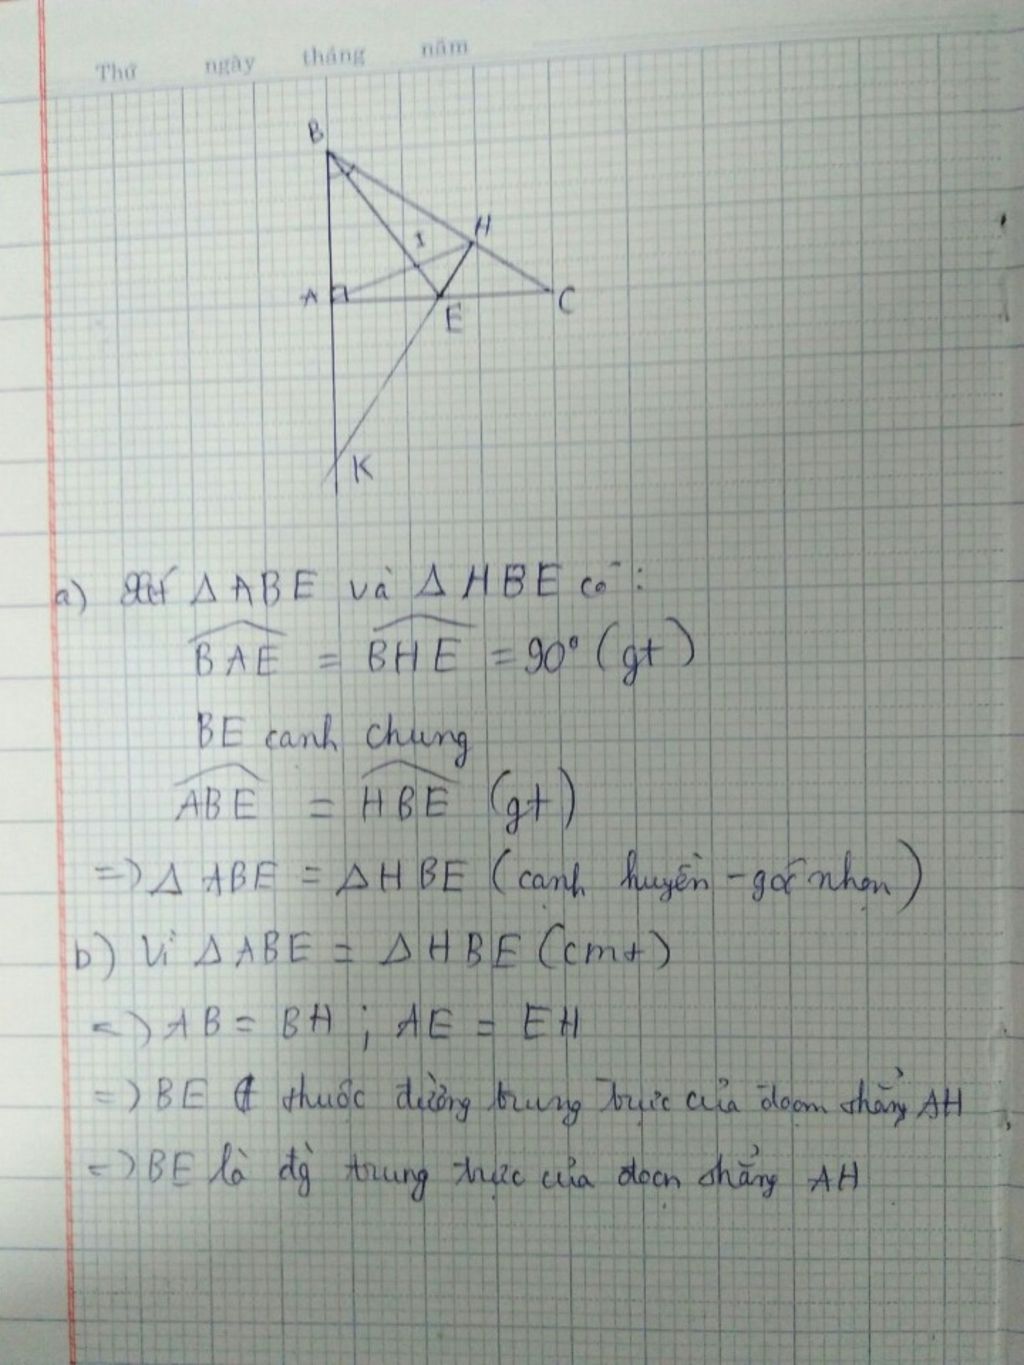 Thứ ngày tháng năm
B
H
I
A
E
C
K
a) Xét Δ ABE và Δ HBE có :
BAE = BHE = 90° (gt)
BE cạnh chung
ABE = HBE (gt)
=> Δ ABE = Δ HBE (cạnh huyền - góc nhọn)
b) Vì Δ ABE = Δ HBE (cmt)
=> AB = BH ; AE = EH
=> BE thuộc đường trung trực của đoạn thẳng AH
=> BE là đg trung trực của đoạn thẳng AH